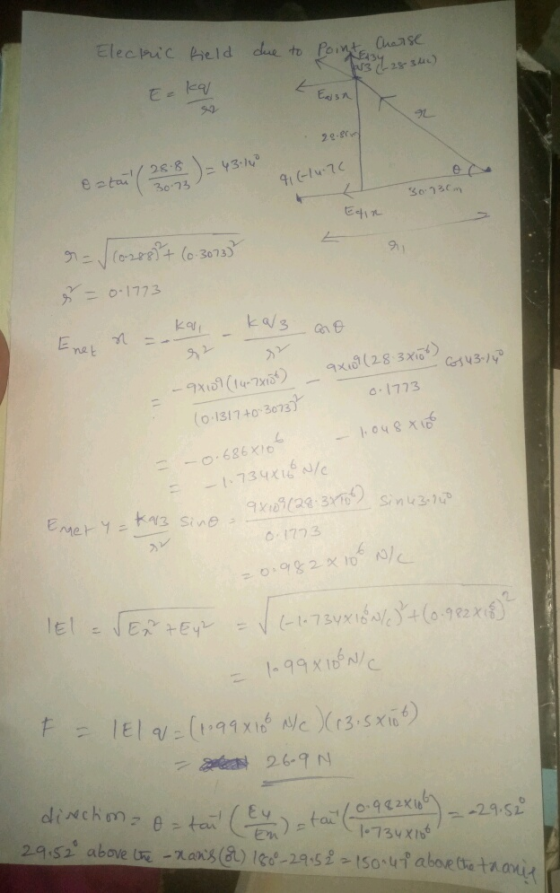 Electric field due to Point Charge
E = kq/r²
Eq3y
q3 (-28.3μC)
Eq3x
r
28.8cm
θ = tan⁻¹(28.8/30.73) = 43.14°
q1 (-14.7C
θ
30.73cm
Eq1x
r1
r = √(0.288)² + (0.3073)²
r² = 0.1773
Enet x = -kq1/r² - kq3/r² cosθ
= -9x10⁹(14.7x10⁻⁶)/(0.1317+0.3073)² - 9x10⁹(28.3x10⁻⁶)/0.1773 cos43.14°
= -0.686x10⁶ - 1.048x10⁶
= -1.734x10⁶ N/C
Enet y = kq3/r² sinθ = 9x10⁹(28.3x10⁻⁶)/0.1773 sin43.14°
= 0.982x10⁶ N/C
|E| = √Ex²+Ey² = √(-1.734x10⁶N/c)²+(0.982x10⁶)²
= 1.99x10⁶N/C
F = |E|q = (1.99x10⁶ N/c)(13.5x10⁻⁶)
= 26.9 N
direction = θ = tan⁻¹(Ey/Ex) = tan⁻¹(0.982x10⁶/1.734x10⁶) = -29.52°
29.52° above the -xaxis (or) 180°-29.52 = 150.47° above the +xaxis